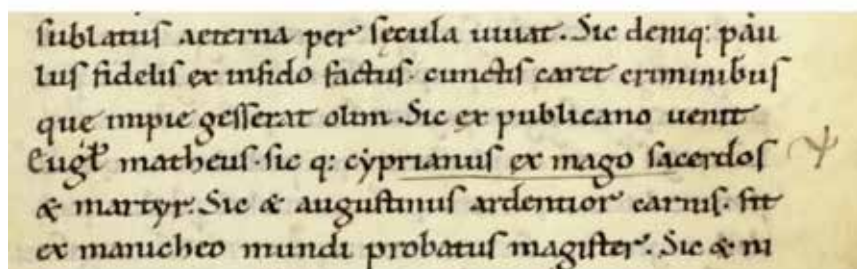 sublatus aeterna per sęcula uiuat. Sic deniq: pau
lus fidelis ex infido factus. cunctis caret criminibus
quę impie gesserat olim. Sic ex publicano uenit
Eugt̄ matheus. sic q: cyprianus ex mago sacerdos
& martyr. Sic & augustinus ardentior carnis. fit
ex manicheo mundi probatus magister. Sic & ni